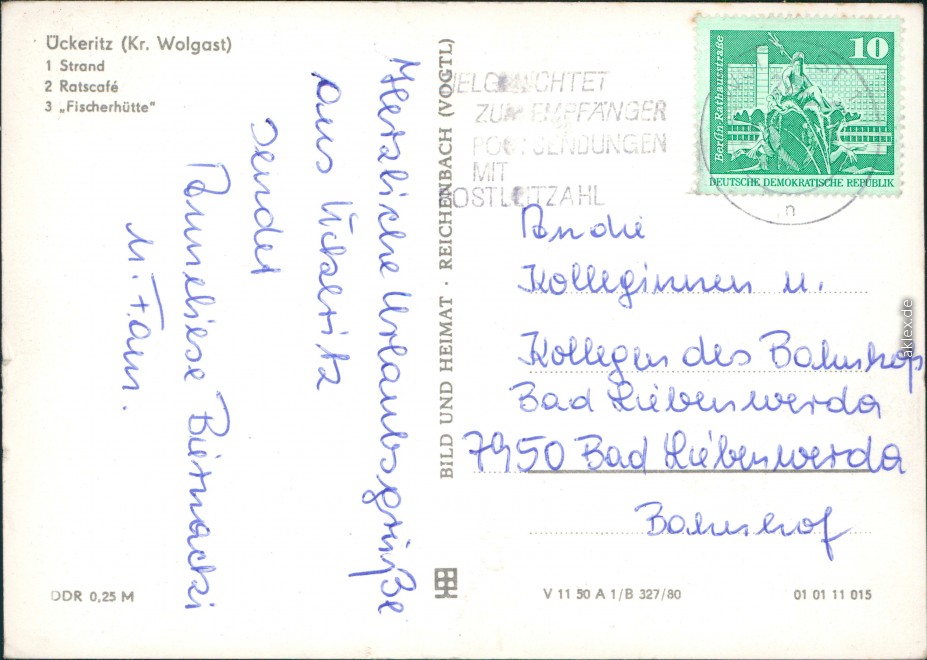 Ückeritz (Kr. Wolgast)
1 Strand
2 Ratscafé
3 „Fischerhütte“
Herzliche Urlaubsgrüße
aus Ückeritz
sendet
Anneliese Biernacki
u. Fam.
DDR 0,25 M
BILD UND HEIMAT · REICHENBACH (VOGTL)
ZUM EMPFÄNGER
POSTSENDUNGEN
MIT
POSTLEITZAHL
10
Berlin Rathausstraße
DEUTSCHE DEMOKRATISCHE REPUBLIK
An die
Kolleginnen u.
Kollegen des Bahnhofs
Bad Liebenwerda
7950 Bad Liebenwerda
Bahnhof
V 11 50 A 1/B 327/80
01 01 11 015
aklex.de